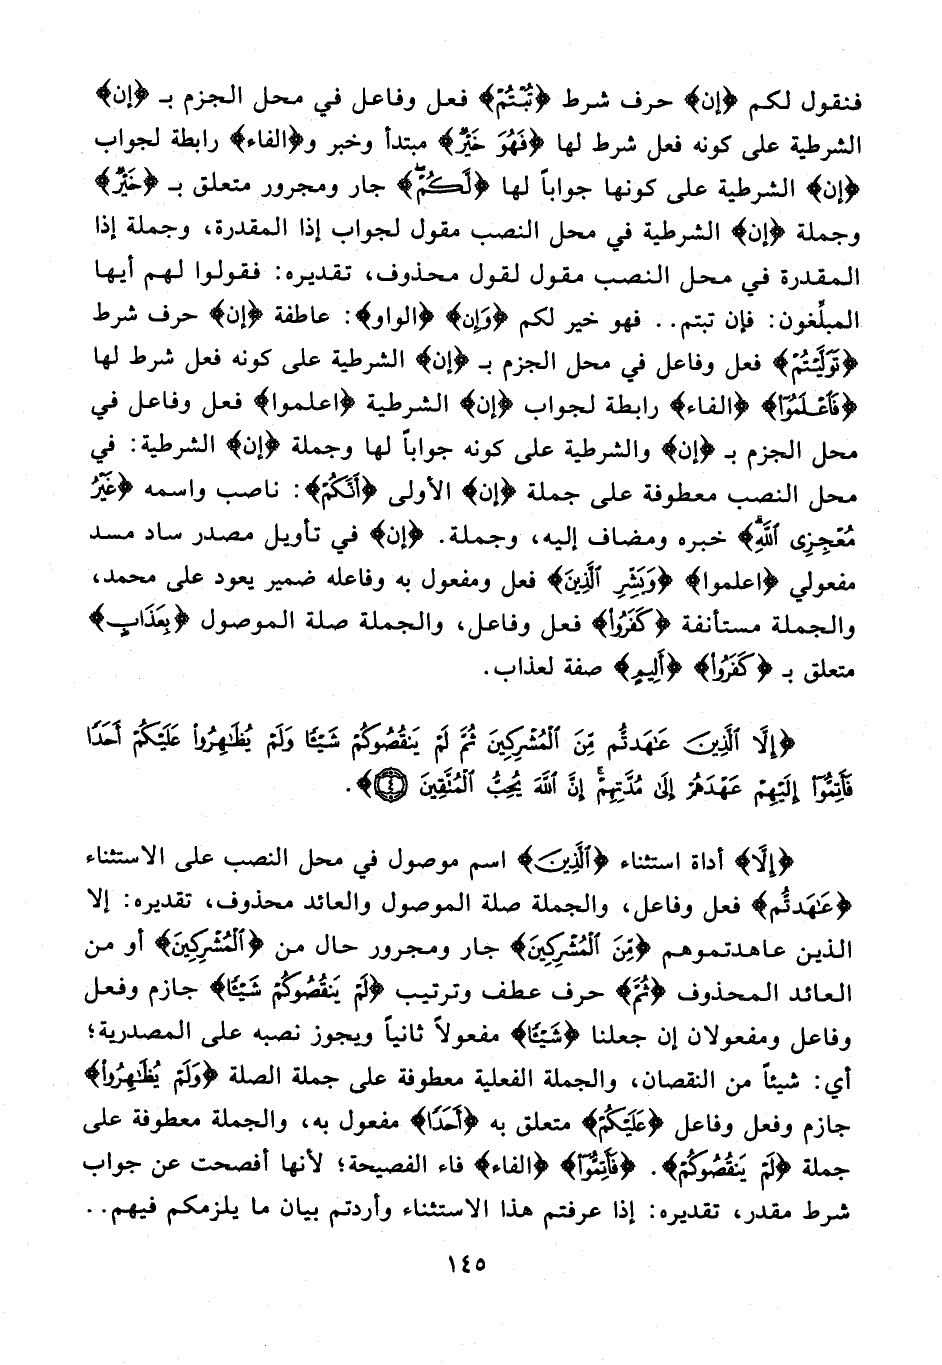 فنقول لكم ﴿إن﴾ حرف شرط ﴿تُبْتُمْ﴾ فعل وفاعل في محل الجزم بـ ﴿إن﴾
الشرطية على كونه فعل شرط لها ﴿فَهُوَ خَيْرٌ﴾ مبتدأ وخبر و﴿الفاء﴾ رابطة لجواب
﴿إن﴾ الشرطية على كونها جواباً لها ﴿لَّكُمْ﴾ جار ومجرور متعلق بـ ﴿خَيْرٌ﴾
وجملة ﴿إن﴾ الشرطية في محل النصب مقول لجواب إذا المقدرة، وجملة إذا
المقدرة في محل النصب مقول لقول محذوف، تقديره: فقولوا لهم أيها
المبلِّغون: فإن تبتم.. فهو خير لكم ﴿وَإِن﴾ ﴿الواو﴾: عاطفة ﴿إن﴾ حرف شرط
﴿تَوَلَّيْتُمْ﴾ فعل وفاعل في محل الجزم بـ ﴿إن﴾ الشرطية على كونه فعل شرط لها
﴿فَٱعْلَمُوٓا۟﴾ ﴿الفاء﴾ رابطة لجواب ﴿إن﴾ الشرطية ﴿اعلموا﴾ فعل وفاعل في
محل الجزم بـ ﴿إن﴾ والشرطية على كونه جواباً لها وجملة ﴿إن﴾ الشرطية: في
محل النصب معطوفة على جملة ﴿إن﴾ الأولى ﴿أَنَّكُمْ﴾: ناصب واسمه ﴿غَيْرُ
مُعْجِزِى ٱللَّهِ﴾ خبره ومضاف إليه، وجملة. ﴿إن﴾ في تأويل مصدر ساد مسد
مفعولي ﴿اعلموا﴾ ﴿وَبَشِّرِ ٱلَّذِينَ﴾ فعل ومفعول به وفاعله ضمير يعود على محمد،
والجملة مستأنفة ﴿كَفَرُوا۟﴾ فعل وفاعل، والجملة صلة الموصول ﴿بِعَذَابٍ﴾
متعلق بـ ﴿كَفَرُوا۟﴾ ﴿أَلِيمٍ﴾ صفة لعذاب.
﴿إِلَّا ٱلَّذِينَ عَـٰهَدتُّم مِّنَ ٱلْمُشْرِكِينَ ثُمَّ لَمْ يَنقُصُوكُمْ شَيْـًٔا وَلَمْ يُظَـٰهِرُوا۟ عَلَيْكُمْ أَحَدًا
فَأَتِمُّوٓا۟ إِلَيْهِمْ عَهْدَهُمْ إِلَىٰ مُدَّتِهِمْ ۚ إِنَّ ٱللَّهَ يُحِبُّ ٱلْمُتَّقِينَ ٤﴾.
﴿إِلَّا﴾ أداة استثناء ﴿ٱلَّذِينَ﴾ اسم موصول في محل النصب على الاستثناء
﴿عَـٰهَدتُّم﴾ فعل وفاعل، والجملة صلة الموصول والعائد محذوف، تقديره: إلا
الذين عاهدتموهم ﴿مِّنَ ٱلْمُشْرِكِينَ﴾ جار ومجرور حال من ﴿ٱلْمُشْرِكِينَ﴾ أو من
العائد المحذوف ﴿ثُمَّ﴾ حرف عطف وترتيب ﴿لَمْ يَنقُصُوكُمْ شَيْـًٔا﴾ جازم وفعل
وفاعل ومفعولان إن جعلنا ﴿شَيْـًٔا﴾ مفعولاً ثانياً ويجوز نصبه على المصدرية؛
أي: شيئاً من النقصان، والجملة الفعلية معطوفة على جملة الصلة ﴿وَلَمْ يُظَـٰهِرُوا۟﴾
جازم وفعل وفاعل ﴿عَلَيْكُمْ﴾ متعلق به ﴿أَحَدًا﴾ مفعول به، والجملة معطوفة على
جملة ﴿لَمْ يَنقُصُوكُمْ﴾. ﴿فَأَتِمُّوٓا۟﴾ ﴿الفاء﴾ فاء الفصيحة؛ لأنها أفصحت عن جواب
شرط مقدر، تقديره: إذا عرفتم هذا الاستثناء وأردتم بيان ما يلزمكم فيهم..
١٤٥